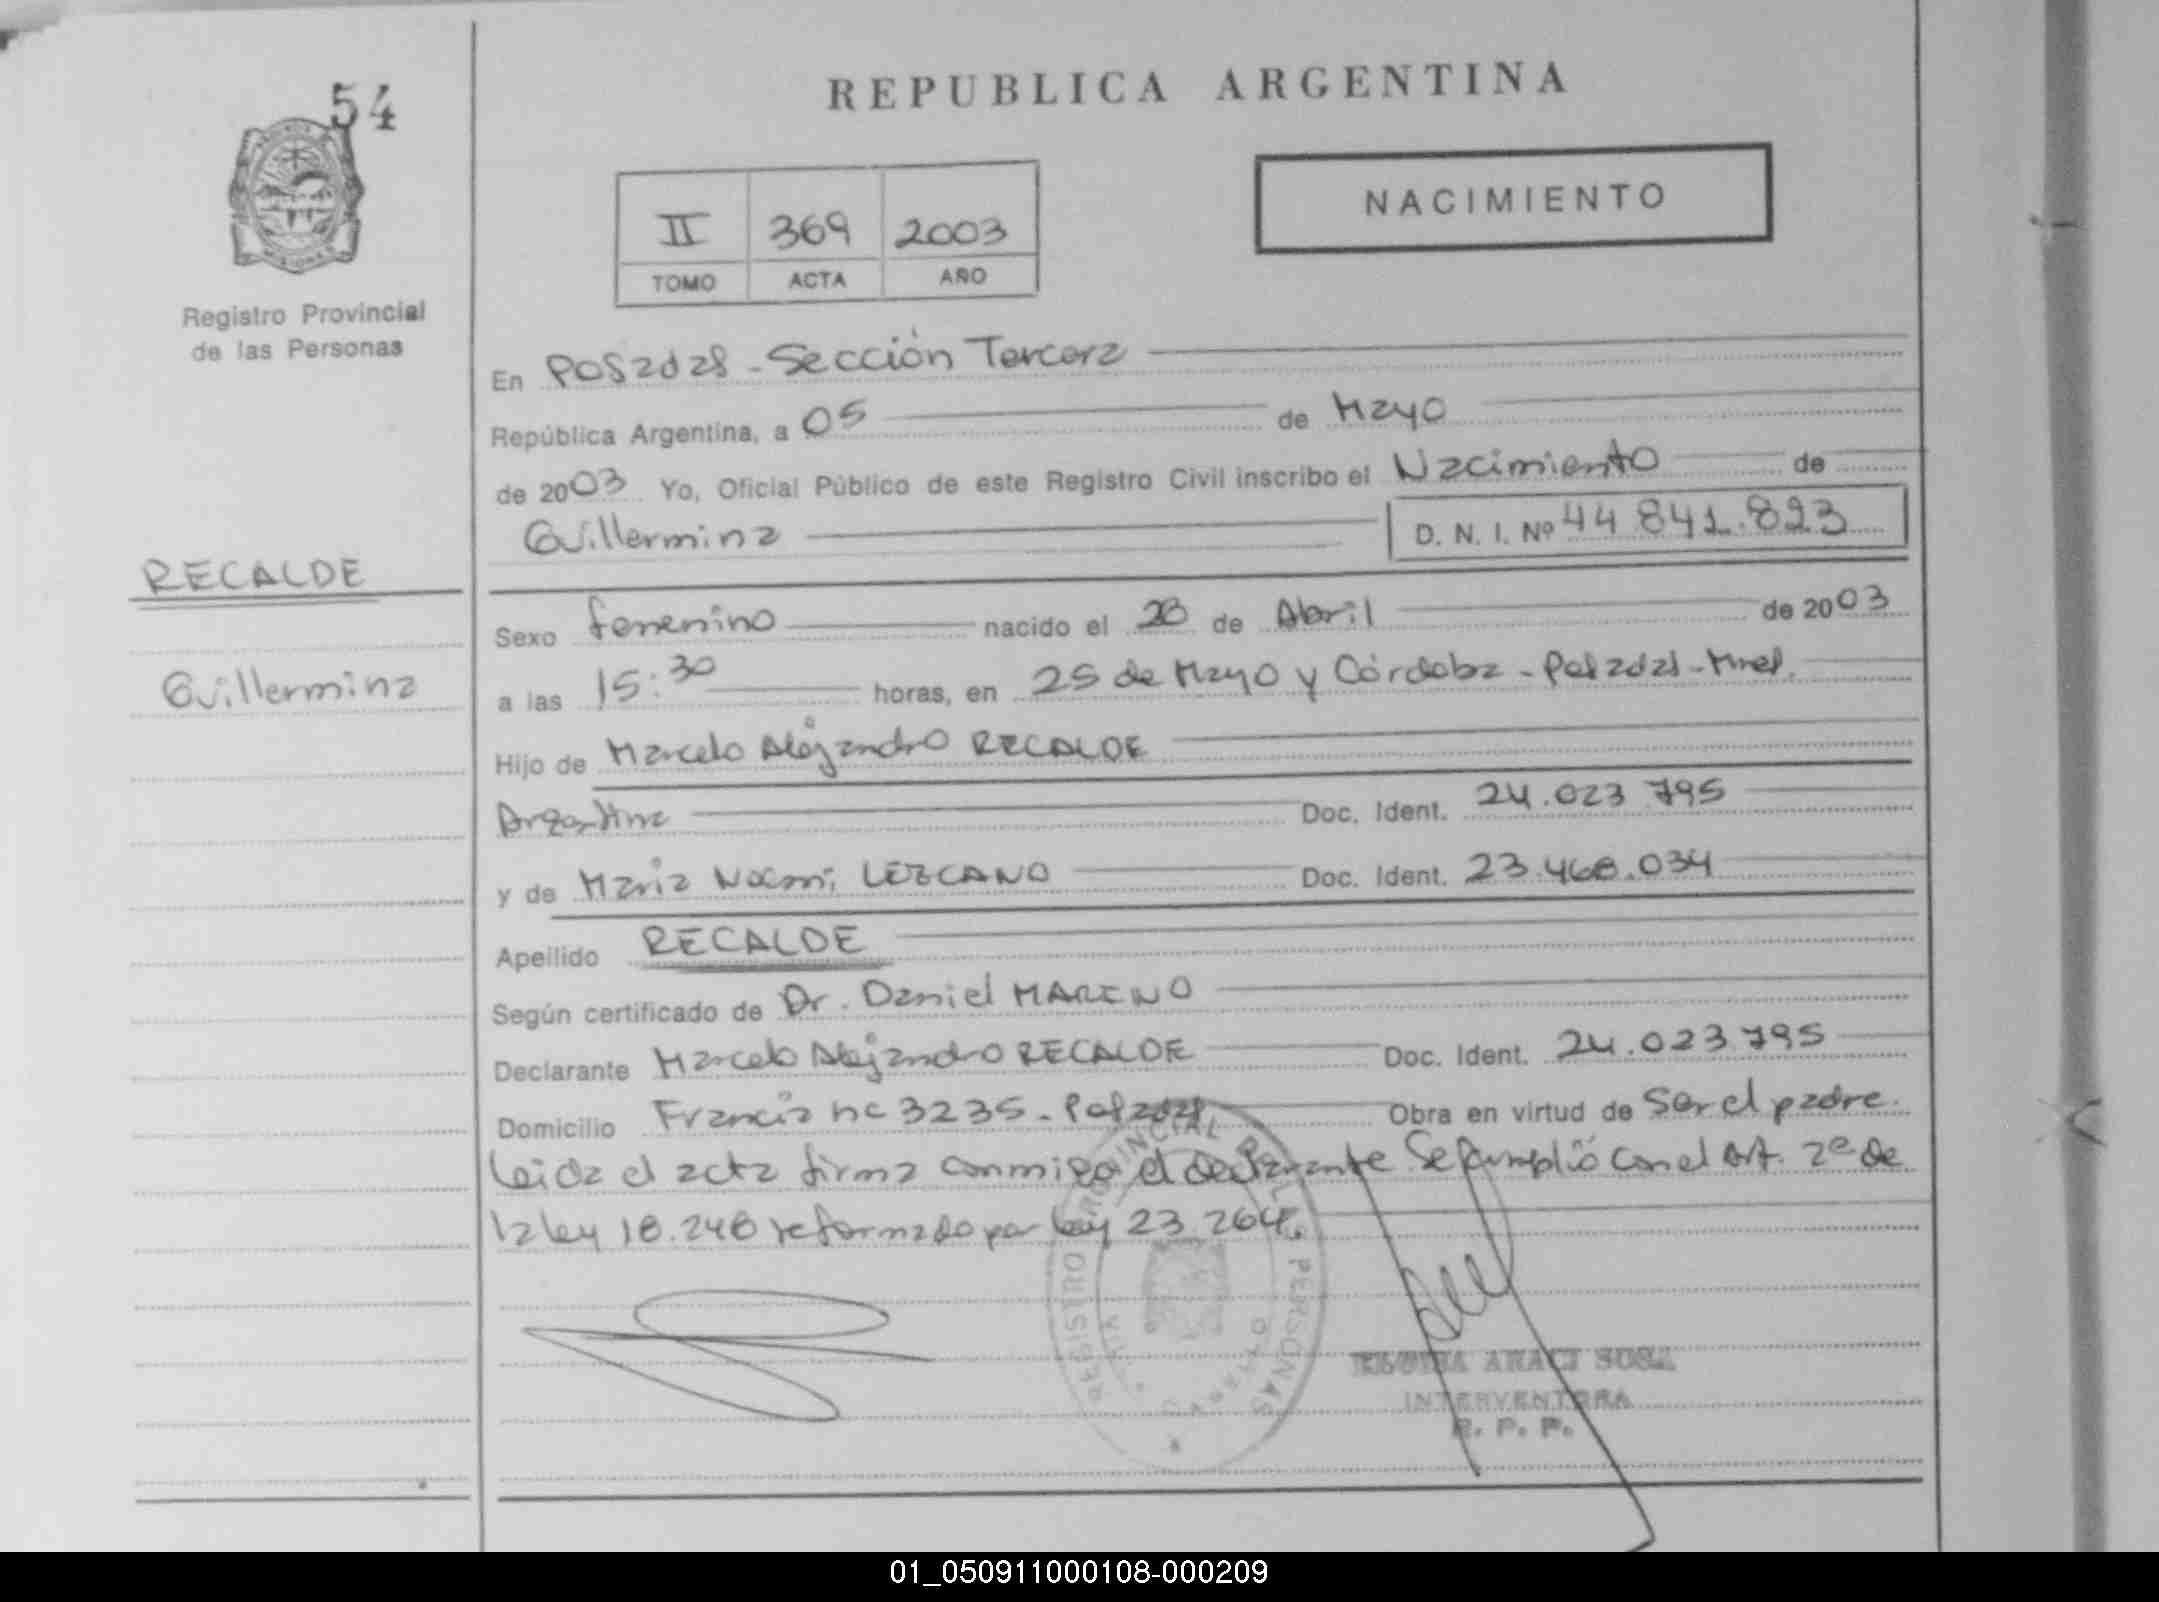 54
REPUBLICA ARGENTINA
NACIMIENTO
II 369 2003
TOMO ACTA AÑO
Registro Provincial
de las Personas
En Posadas - Sección Tercera
República Argentina, a 05 de Mayo
de 2003 Yo, Oficial Público de este Registro Civil inscribo el Nacimiento de
Guillermina D. N. I. Nº 44 841.823
RECALDE
Guillermina
Sexo femenino nacido el 28 de Abril de 2003
a las 15:30 horas, en 25 de Mayo y Córdoba - Posadas - Mnes.
Hijo de Marcelo Alejandro RECALDE
Argentina Doc. Ident. 24.023.795
y de Maria Noemi LEZCANO Doc. Ident. 23.468.034
Apellido RECALDE
Según certificado de Dr. Daniel MARINO
Declarante Marcelo Alejandro RECALDE Doc. Ident. 24.023.795
Domicilio Francia nc 3235 - Posadas Obra en virtud de Ser el padre.
Leida el acta firma conmigo el declarante Se cumplió con el Art. 2º de
la ley 18.248 reformado por ley 23.264.
REGISTRO PROVINCIAL DE LAS PERSONAS
ARACI SOSA
INTERVENTORA
R. P. P.
01_050911000108-000209